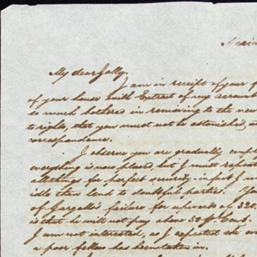 My dear Jolly
I am in receipt of your f
of your house with Extract of my account
so much bothered in removing to the new
to rights, that you must not be astonished a
correspondence.
I observe you are gradually
everything is now placed, but I must
all things for perfect security in put I
idle then lend to doubtful parties. You
of failure for upwards of 320
is that he will not pay about 30
I am not interested, as I expected the
a poor fellow has been taken in.